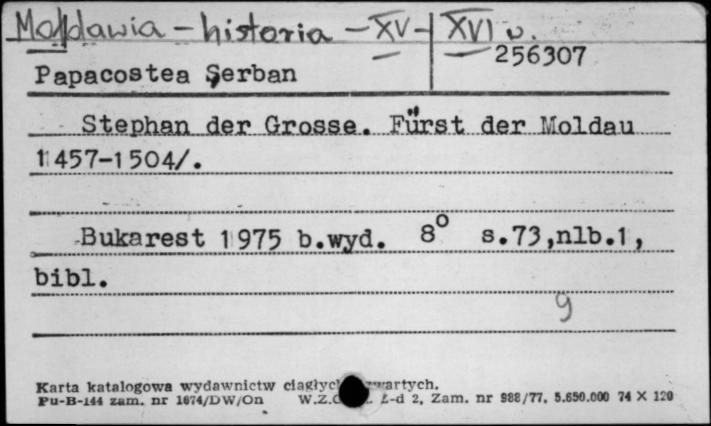 Mołdawia – historia – XV – XVI w.
256307
Papacostea Şerban
Stephan der Grosse. Fürst der Moldau
1457-1504/.
Bukarest 1975 b.wyd. 8° s.73,nlb.1,
bibl.
9
Karta katalogowa wydawnictw
Pu-B-144 zam. nr 1674/DW/On 2, Zam. nr 988/77, 5.650.000 74 X 120